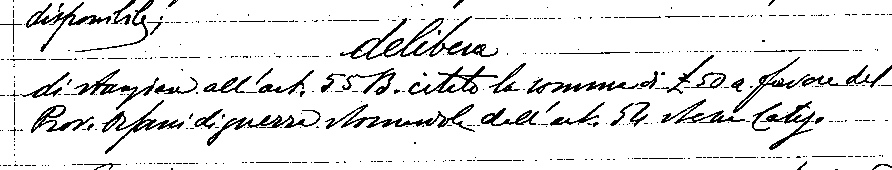 disponibile;
delibera
di stanziare all'art. 55 B. citato la somma di £ 50 a favore del
Prov. Orfani di guerra stornandola dall'art. 54 stessa Catg.